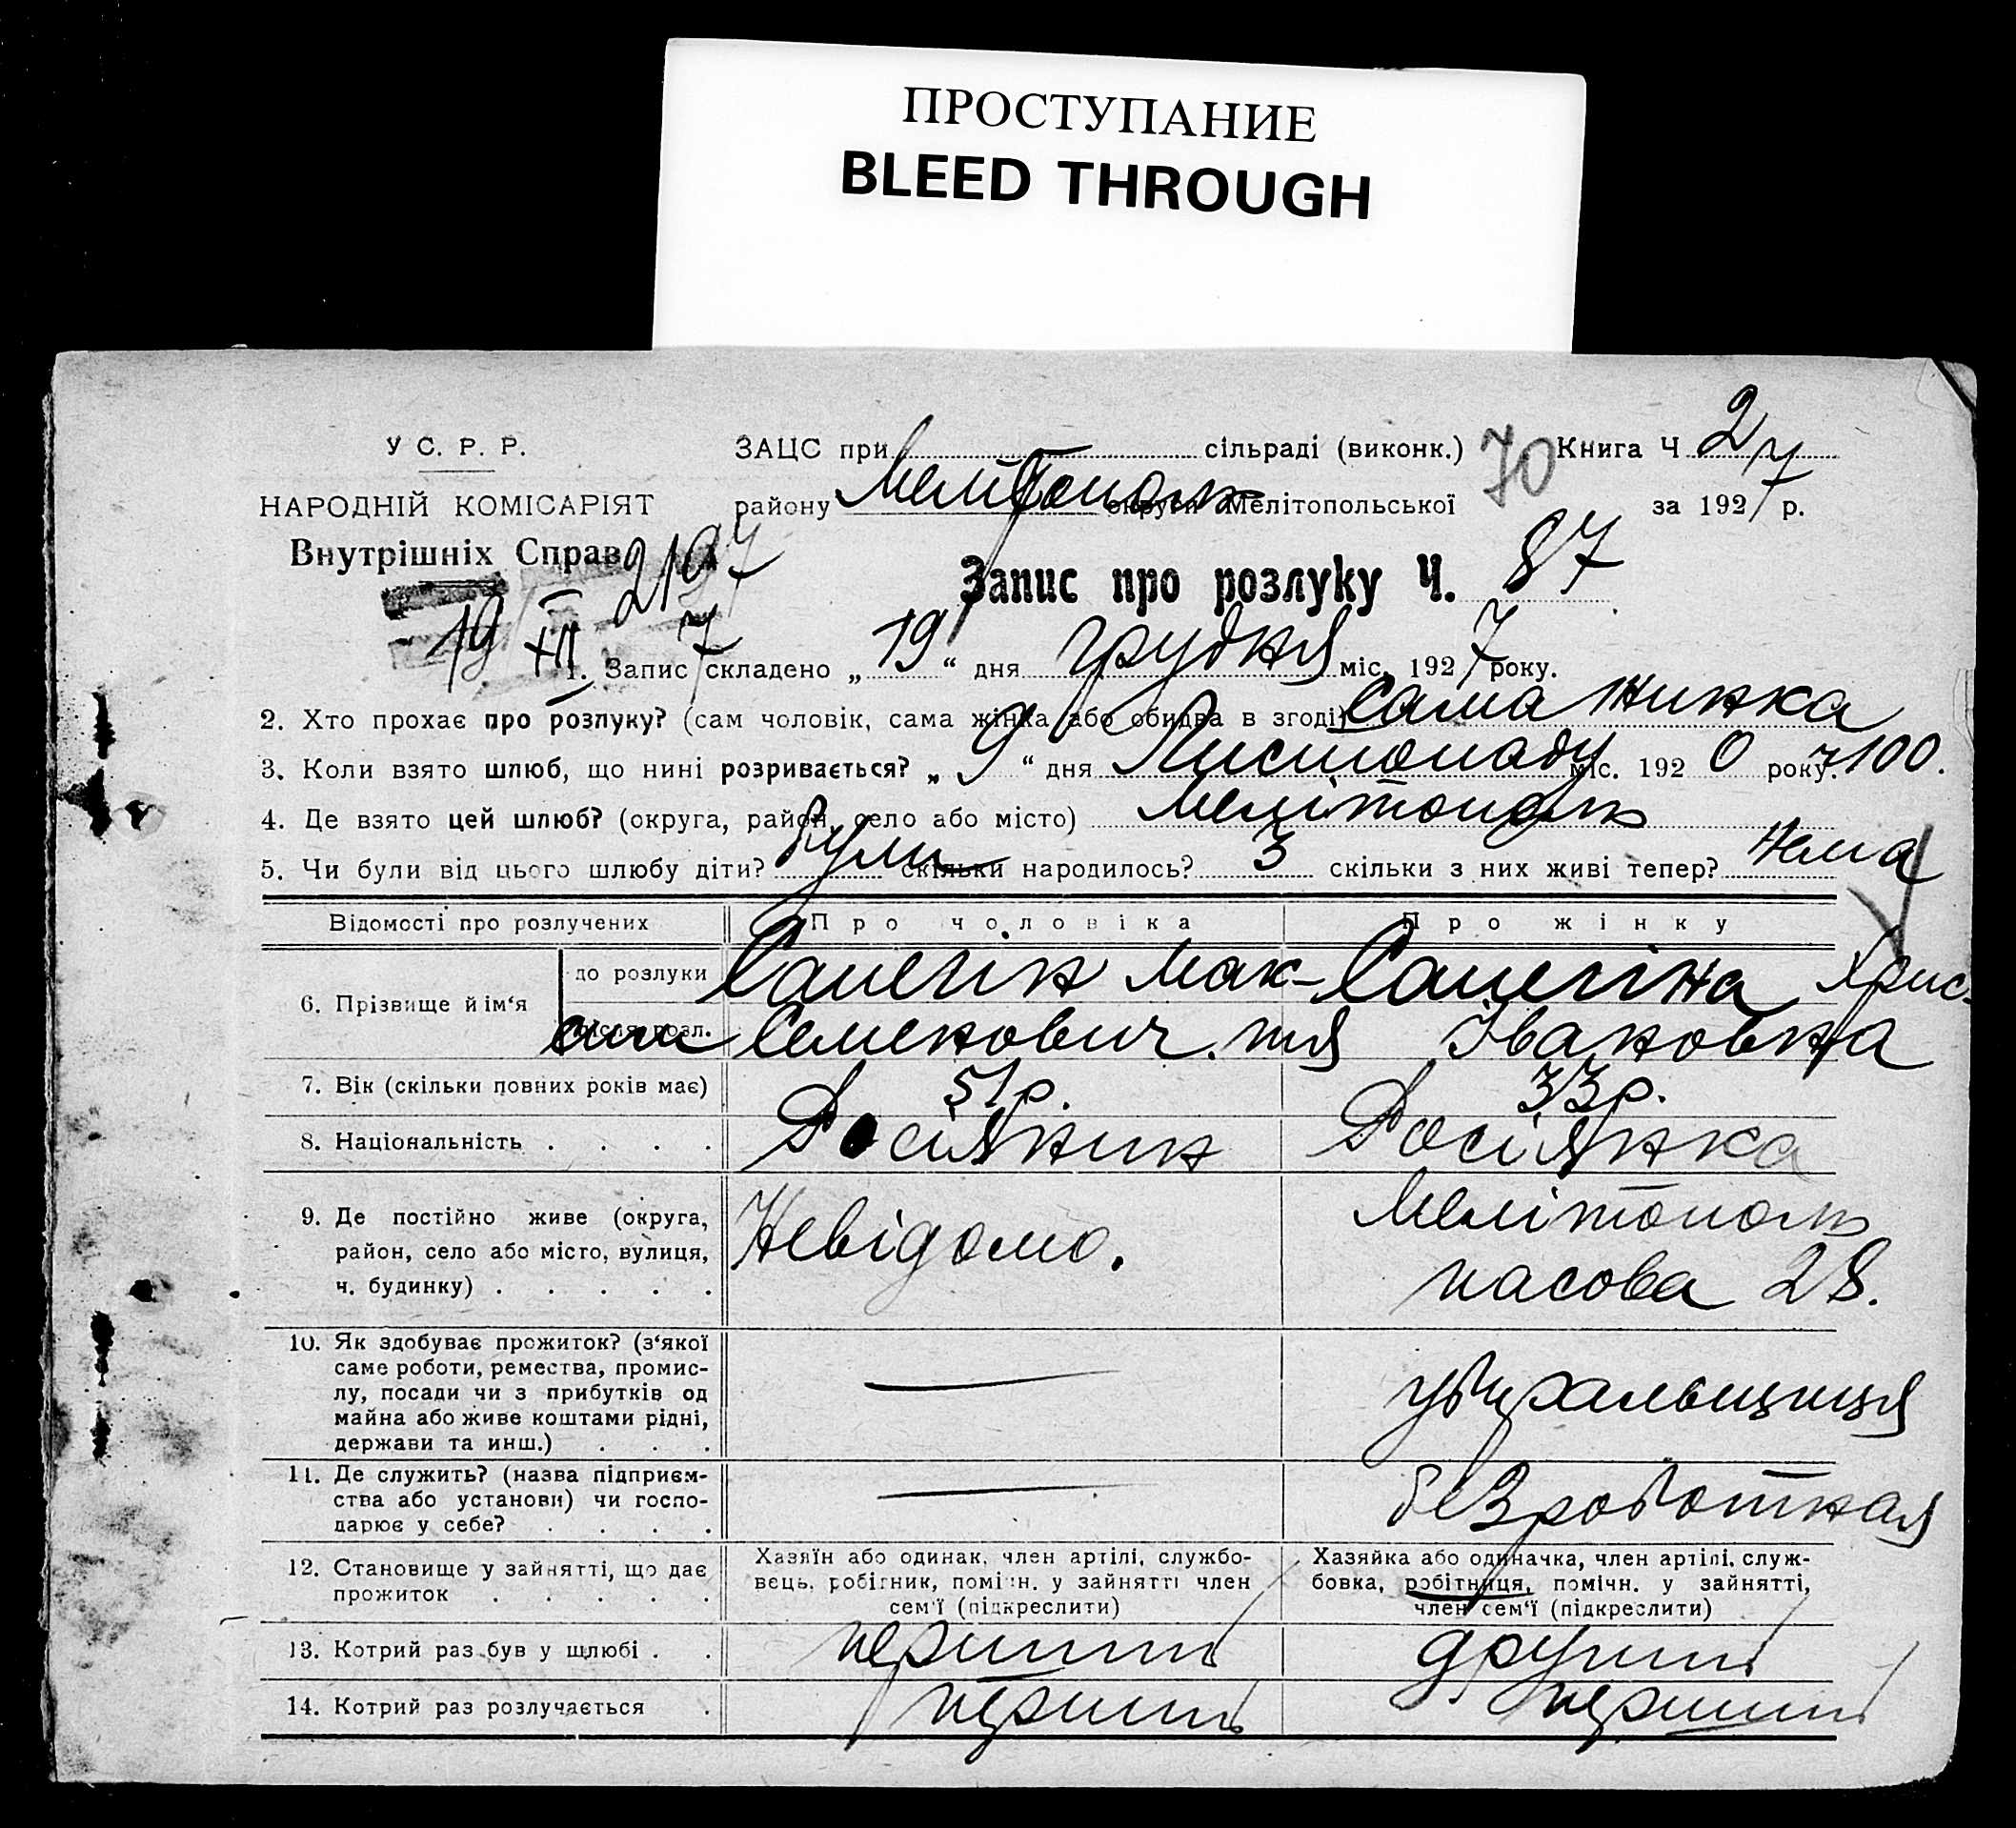 ПРОСТУПАНИЕ
BLEED THROUGH
У С. Р. Р.
НАРОДНІЙ КОМІСАРІЯТ
Внутрішніх Справ
2197
19/XII 7
ЗАЦС при сільраді (виконк.) 70 Книга Ч 2
району Мелітополь округи Мелітопольської за 1927 р.
Запис про розлуку Ч. 87
1. Запис складено „ 19 “ дня грудня міс. 1927 року.
2. Хто прохає про розлуку? (сам чоловік, сама жінка або обидва в згоді) Сама жинка
3. Коли взято шлюб, що нині розривається? „ 9 “ дня Листопаду міс. 1920 року. 100.
4. Де взято цей шлюб? (округа, район, село або місто) Мелітополь
5. Чи були від цього шлюбу діти? були скільки народилось? 3 скільки з них живі тепер? Нема
Відомості про розлучених Про чоловіка Про жінку
6. Прізвище й ім‘я
до розлуки
після розл.
Сапегін Мак-
сим Семенович.
Сапегіна Хрис-
тя Івановна
7. Вік (скільки повних років має) 51р. 33р.
8. Національність . . . . Росіянин Росіянка
9. Де постійно живе (округа,
район, село або місто, вулиця,
ч. будинку) . . . . .
Невідомо.
Мелітополь
пасова 28.
10. Як здобуває прожиток? (з‘якої
саме роботи, ремества, промис-
лу, посади чи з прибутків од
майна або живе коштами рідні,
держави та инш.) . . .
—
убиральщиця
11. Де служить? (назва підприєм-
ства або установи) чи госпо-
дарює у себе? . . . .
—
безроботная
12. Становище у зайнятті, що дає
прожиток . . . . .
Хазяїн або одинак, член артілі, службо-
вець, робітник, помічн. у зайнятті член
сем‘ї (підкреслити)
Хазяйка або одиначка, член артілі, служ-
бовка, робітниця, помічн. у зайнятті,
член сем‘ї (підкреслити)
13. Котрий раз був у шлюбі . . перший другий
14. Котрий раз розлучається . перший перший